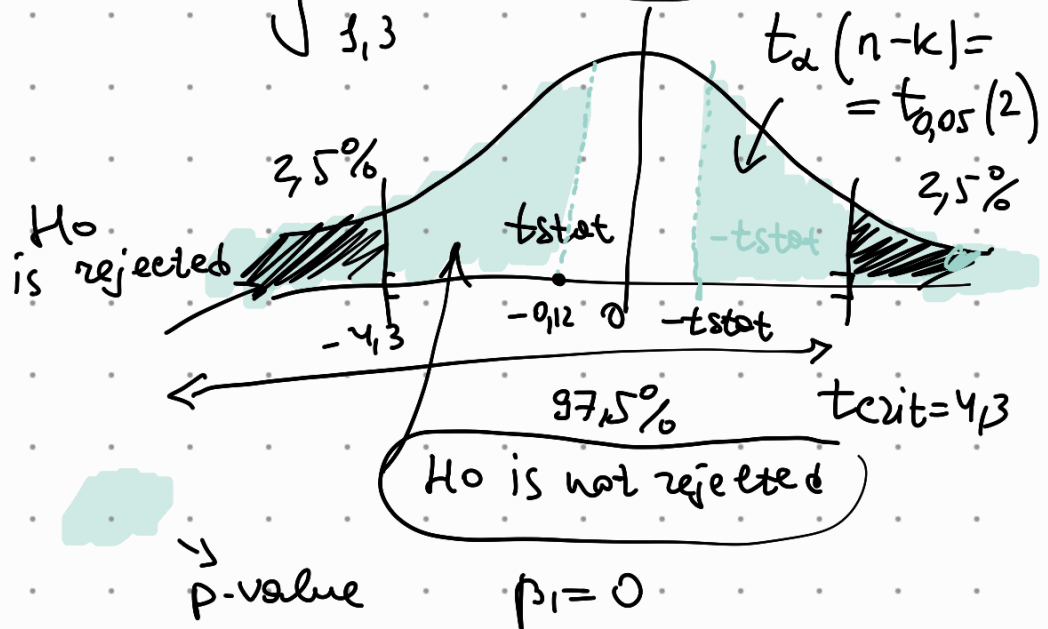 1,3
tα (n-k)=
= t0,05 (2)
2,5%
2,5%
Ho
is rejected
tstat
-tstat
-4,3
-0,12
0
-tstat
97,5%
tcrit=4,3
Ho is not rejected
p-value
β1=0